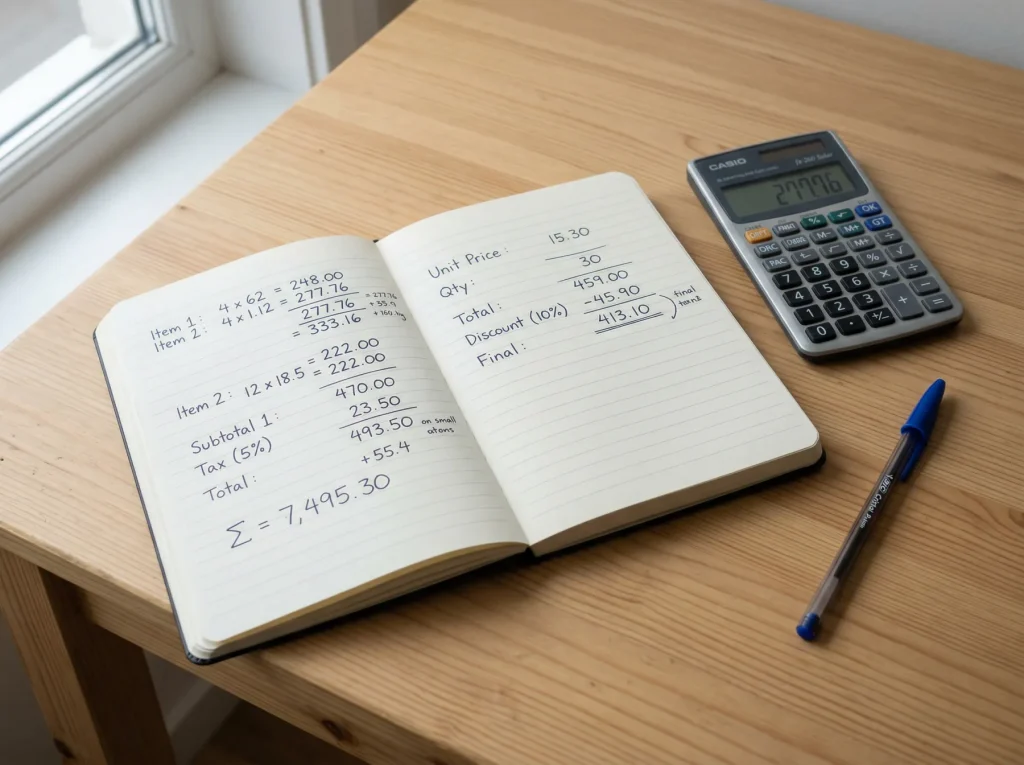 Item 1: 4 × 62 = 248.00
Item 2: 4 × 1.12 = 277.76
277.76 = 277.76
= 333.16
Item 2: 12 × 18.5 = 222.00
= 222.00
470.00
Subtotal 1: 23.50
Tax (5%) 493.50 on small
Total: +55.4
Σ = 7,495.30
Unit Price: 15.30
Qty: 30
Total: 459.00
Discount (10%) -45.90
Final: 413.10 final
CASIO
27776
OK
GT
M-
M+
%
7 8 9
4 5 6
1 2 3
0